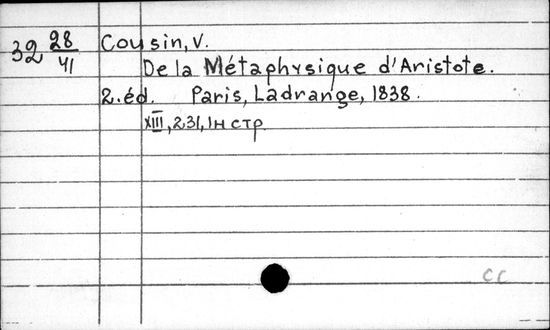 32 28/41 Cousin, V.
De la Métaphysique d'Aristote.
2.éd. Paris, Ladrange, 1838.
XIII, 231, 1н стр.
cc